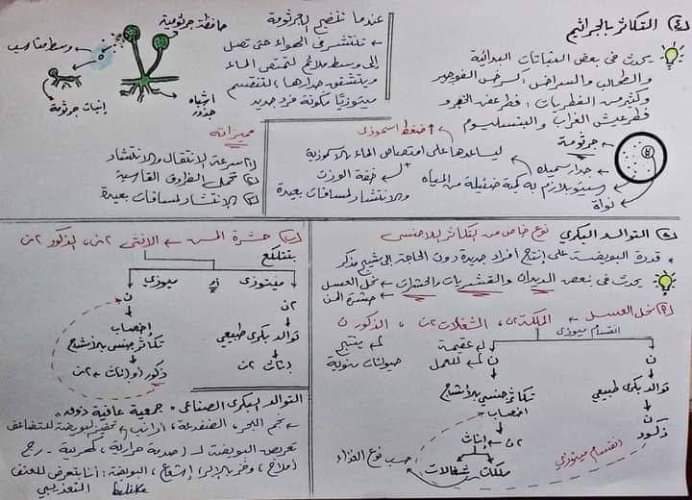 ٤) التكاثر بالجراثيم
يحدث في بعض النباتات البدائية
والطحالب والسراخس كسرخس الفوجير
وكثير من الفطريات : فطر عفن الخبز و
فطر عيش الغراب والبنسليوم
عندما تنضج الجرثومة
تنتشر في الهواء حتى تصل
إلى وسط ملائم لتمتص الماء
ويتشقق جدارها، لتنقسم
ميتوزيًا مكونة فرد جديد
حافظة جرثومية
وسط مناسب
إنبات جرثومة
أشباه
جذور
جرثومة
جدار سميك
سيتوبلازم به كمية ضئيلة من المياه
نواة
ضغط اسموزي
ليساعدها على امتصاص الماء بالاسموزية
خفة الوزن
والانتشار لمسافات بعيدة
مميزاته
١) سرعة الانتقال والانتشار
٢) تحمل الظروف القاسية
٣) الانتشار لمسافات بعيدة
٥) التوالد البكري نوع خاص من التكاثر اللاجنسي
قدرة البويضة على إنتاج أفراد جديدة دون الحاجة إلى مشيج مذكر
يحدث في بعض الديدان والقشريات والحشرات
نحل العسل
حشرة المن
نحل العسل ← الملكة ٢ن، الشغالات ٢ن، الذكور ن
انقسام ميوزي
ن
توالد بكري طبيعي
ن
ذكور
ن
تكاثر جنسي بالأمشاج
إخصاب
٢ن ← إناث
ملكات شغالات
حسب نوع الغذاء
عقيمة
للعمل
تنتج
حيوانات منوية
انقسام ميتوزي
حشرة المن ← الانثى ٢ن، الذكور ٢ن
ميتوزي أو ميوزي
٢ن
توالد بكري طبيعي
إناث ٢ن
ن
إخصاب
تكاثر جنسي بالأمشاج
ذكور أو إناث ← ٢ن
التوالد البكري الصناعي
نجم البحر، الضفدعة، أرانب ← تحفيز البويضة للتضاعف
تعريض البويضة لـ (صدمة حرارية، كهربية - رج
أملاح، وخز بالإبر) إشعاع، البويضة : أنا بتعرض للعنف
التعذيبي